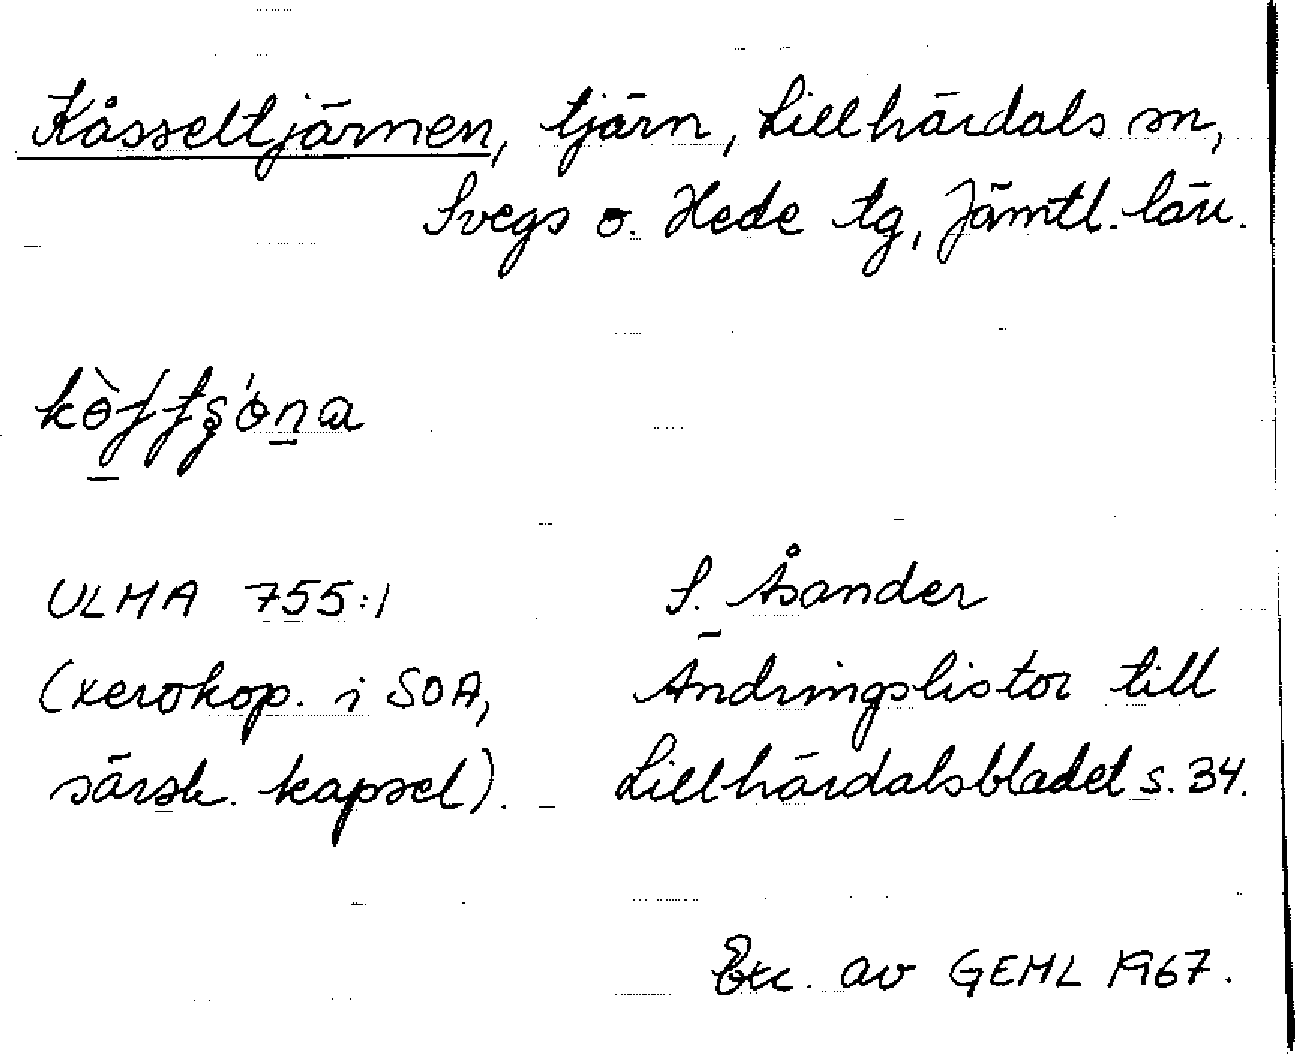 Kåsseltjärnen, tjärn, Lillhärdals sn,
Svegs o. Hede tg, Jämtl. län.
ULMA 755:1
S. Åsander
(xerokop. i SOA,
Ändringslistor till
särsk. kapsel). -
Lillhärdalsbladet s. 34.
Exc. av GEML 1967.